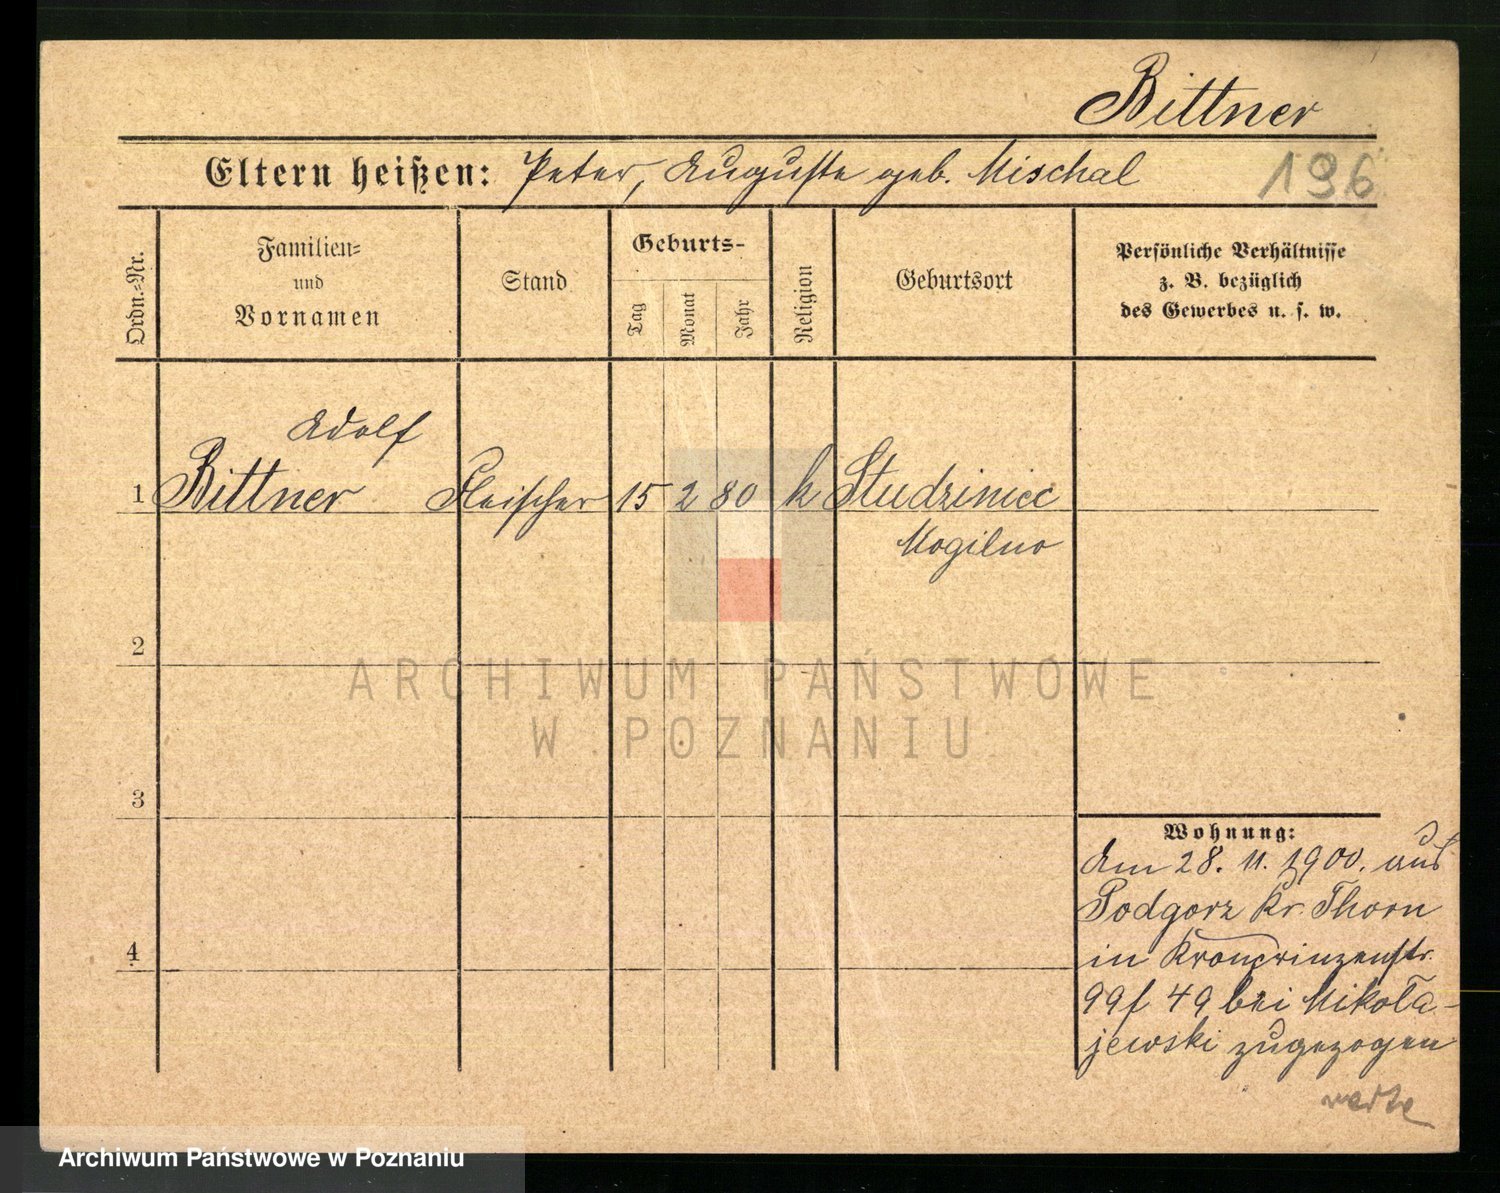 Bittner
Eltern heißen: Peter, Auguste geb. Mischal
196
Ordn.-Nr.
Familien-
und
Vornamen
Stand
Geburts-
Tag
Monat
Jahr
Religion
Geburtsort
Persönliche Verhältnisse
z. B. bezüglich
des Gewerbes u. s. w.
Adolf
1 Bittner Fleischer 15 2 80 k Studziniec
Mogilno
2
ARCHIWUM PAŃSTWOWE
W POZNANIU
3
Wohnung:
Am 28. 11. 1900. aus
Podgorz Kr. Thorn
in Kronprinzenstr.
99f 49 bei Mikoła-
jewski zugezogen
4
Archiwum Państwowe w Poznaniu